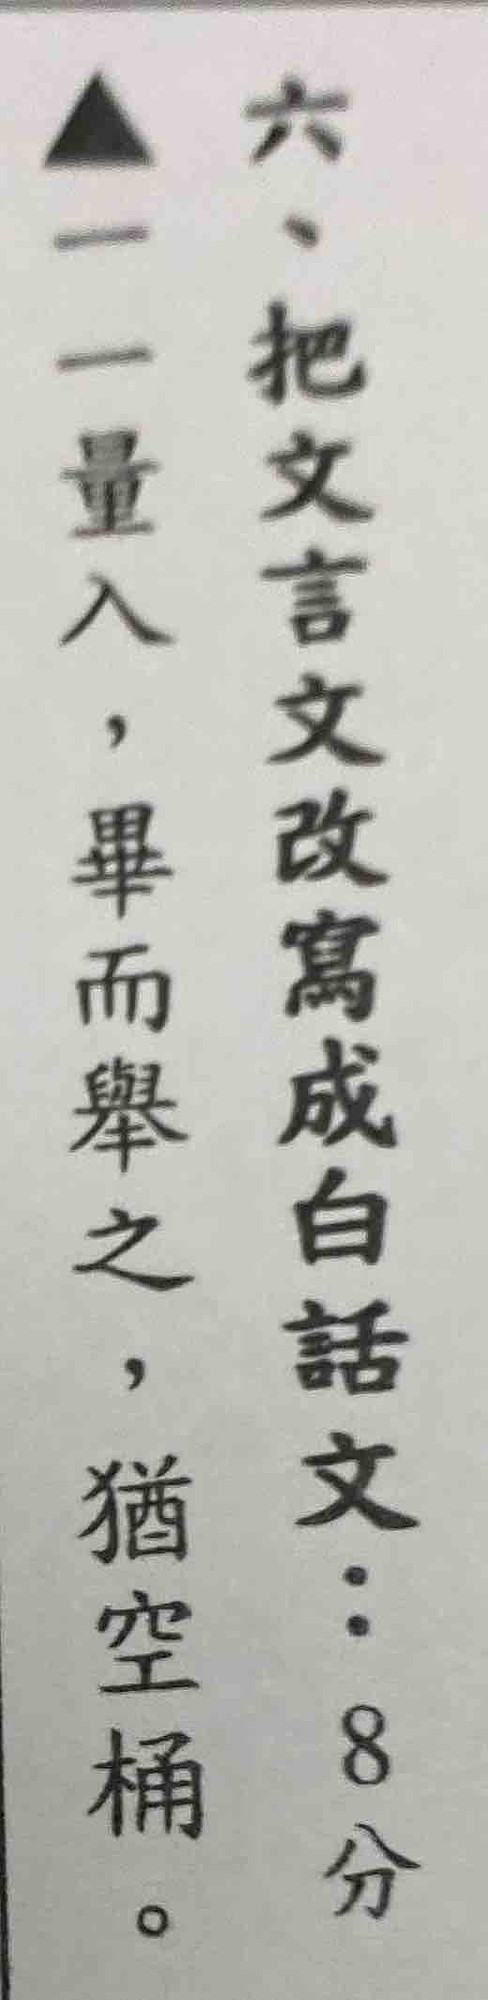 六、把文言文改寫成白話文：8分
▲一一量入，畢而舉之，猶空桶。